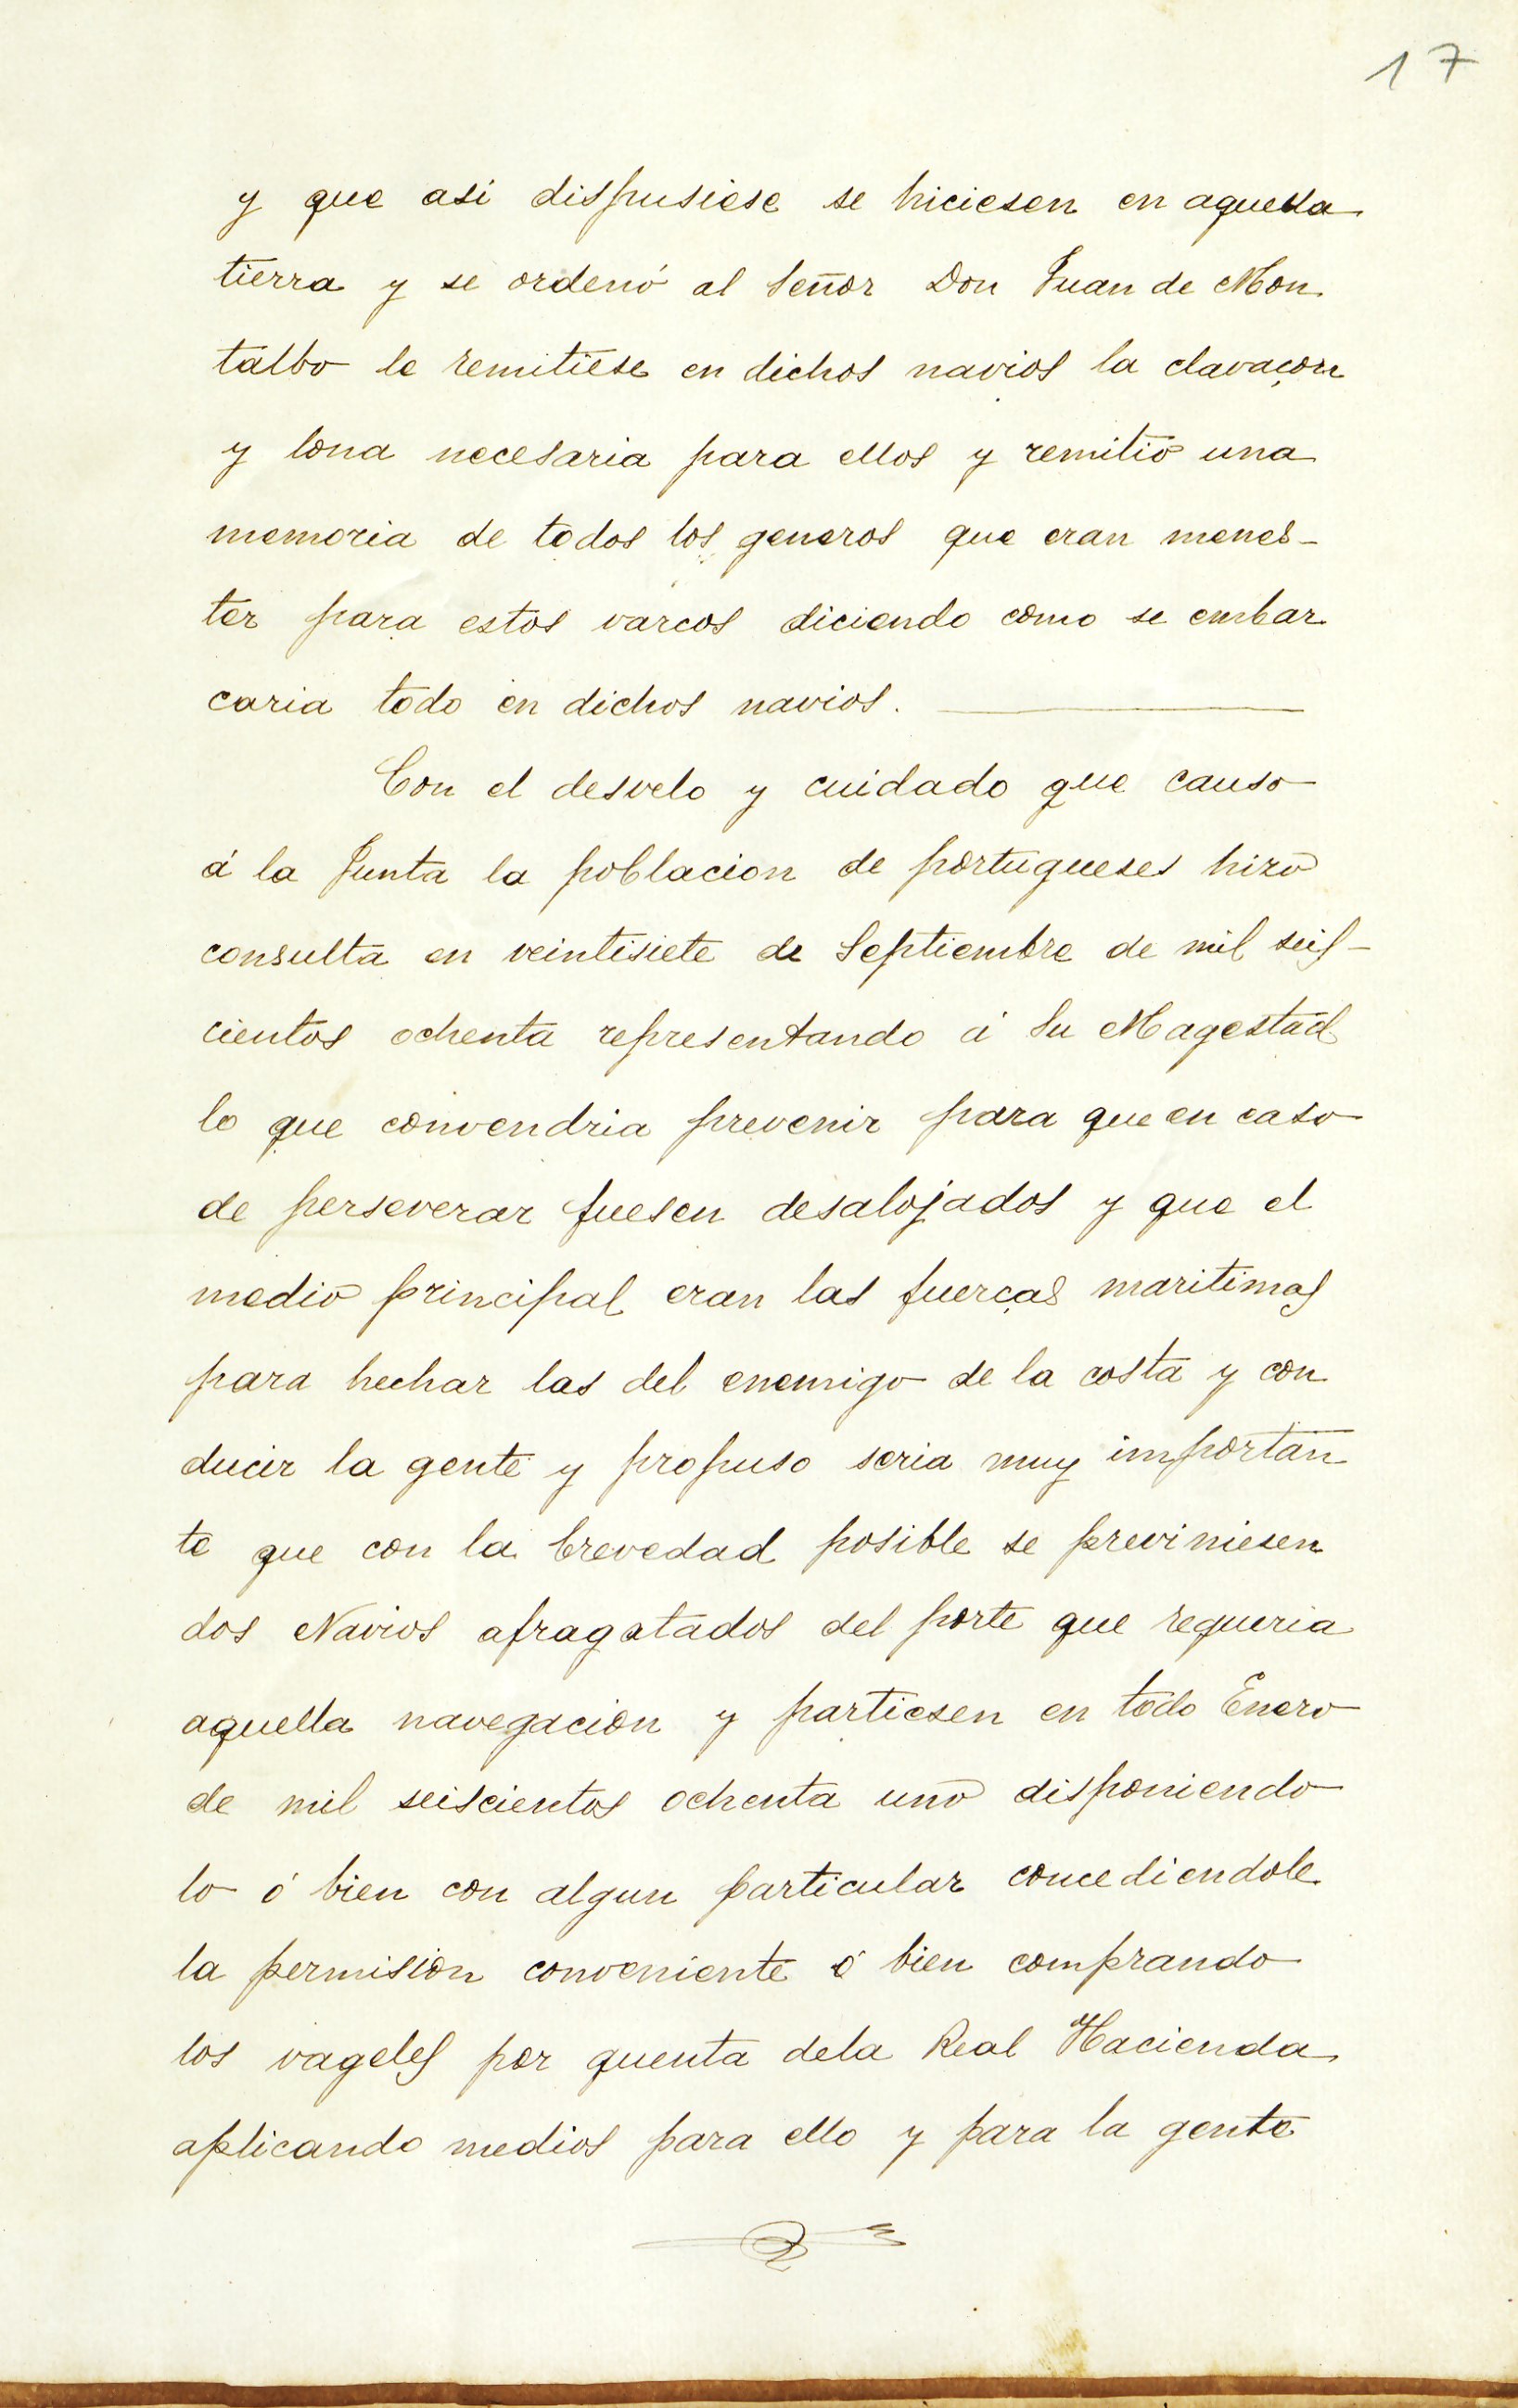 17
y que asi dispusiese se hiciesen en aquella
tierra y se ordenó al Señor Don Juan de Mon
talbo le remitiese en dichos navios la clavaçon
y lona necesaria para ellos y remitió una
memoria de todos los generos que eran menes-
ter para estos varcos diciendo como se embar
caria todo en dichos navios.
Con el desvelo y cuidado que causo
á la Junta la poblacion de portugueses hizo
consulta en veintisiete de Septiembre de mil seis-
cientos ochenta representando á Su Magestad
lo que convendria prevenir para que en caso
de perseverar fuesen desalojados y que el
medio principal eran las fuerças maritimas
para hechar las del enemigo de la costa y con
ducir la gente y propuso seria muy importan
te que con la brevedad posible se previniesen
dos Navios afragatados del porte que requeria
aquella navegacion y partiesen en todo Enero
de mil seiscientos ochenta uno disponiendo
lo ó bien con algun particular concediendole
la permision conveniente ó bien comprando
los vageles por quenta dela Real Hacienda
aplicando medios para ello y para la gente